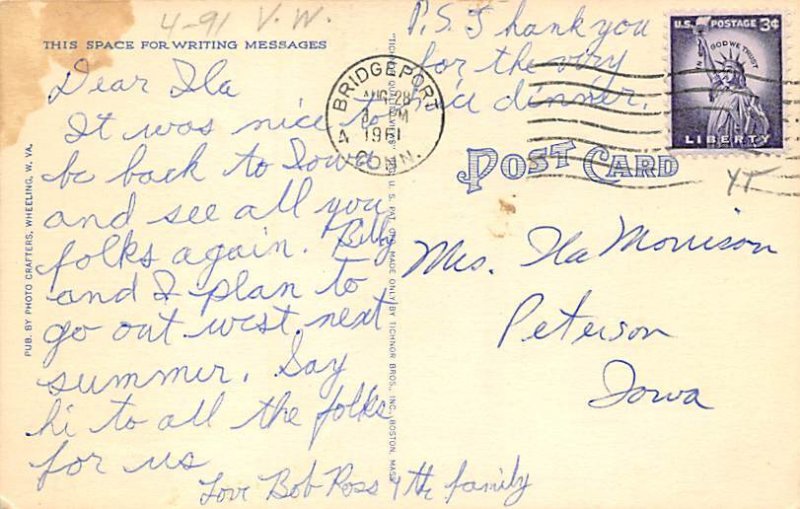 4-91 V.W.
THIS SPACE FOR WRITING MESSAGES
Dear Ila
It was nice to
be back to Iowa
and see all you
folks again. Billy
and I plan to
go out west next
summer. Say
hi to all the folks
for us
Love Bob Ross & the family
P.S. I thank you
for the very
dinner.
BRIDGEPORT
AUG 28
PM
1961
CONN.
4
U.S. POSTAGE 3¢
IN GOD WE TRUST
LIBERTY
POST CARD
Mrs. Ila Morrison
Peterson
Iowa
PUB. BY PHOTO CRAFTERS, WHEELING, W. VA.
MADE ONLY BY TICHNOR BROS., INC., BOSTON, MASS.